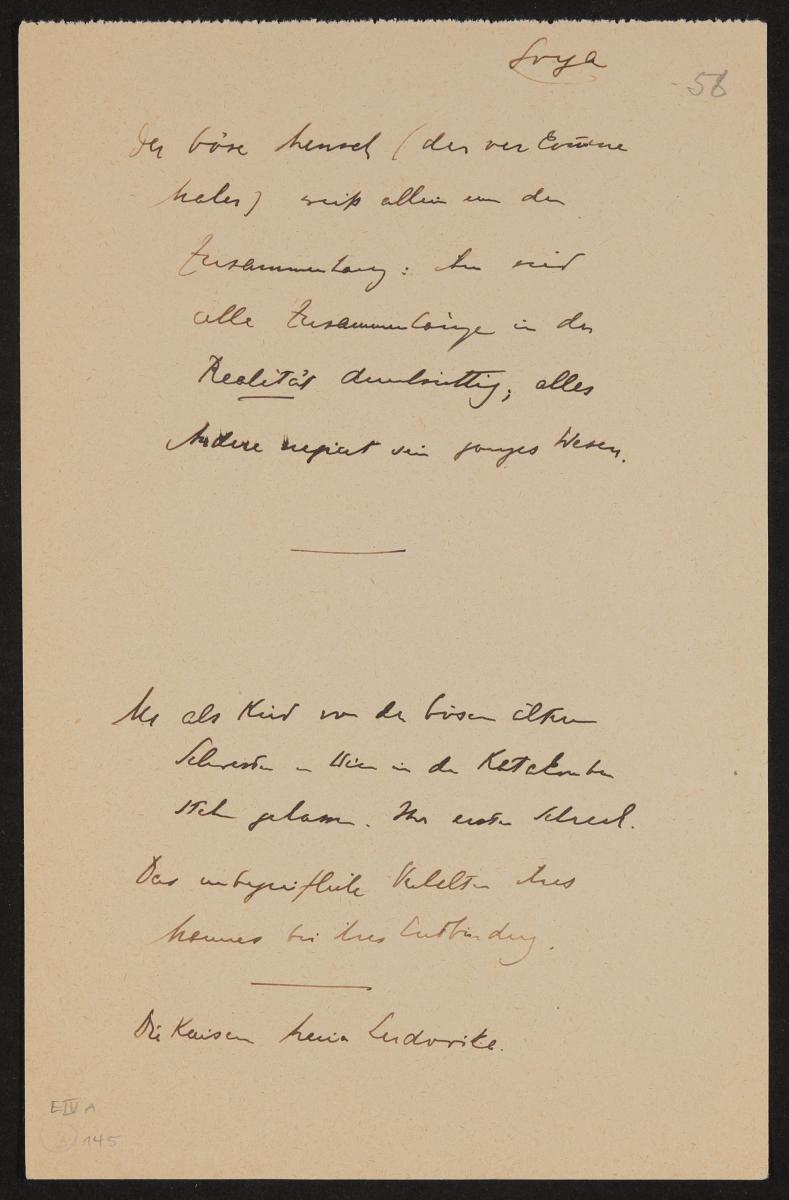 Goya
56
Der böse Mensch (der verkommene
Maler) weiß allein um den
Zusammenhang: ihm sind
alle Zusammenhänge in der
Realität durchsichtig; alles
Andere negiert sein ganzes Wesen.
als Kind von der bösen älteren
Schwester in Wien in den Katakomben
stehn gelassen. Ihr erster Schreck.
Das unbegreifliche Verhalten ihres
Mannes bei ihrer Entbindung.
Die Kaiserin Maria Ludovika.
E IV A
145